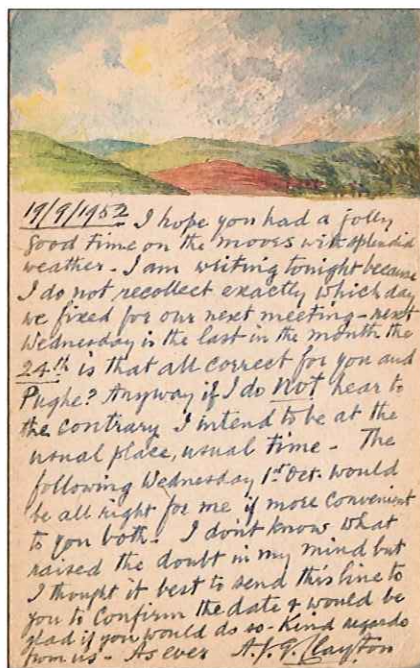 19/9/1952 I hope you had a jolly
good time on the moors with splendid
weather - I am writing tonight because
I do not recollect exactly which day
we fixed for our next meeting - next
Wednesday is the last in the month the
24th is that all correct for you and
Pughe? Anyway if I do not hear to
the contrary I intend to be at the
usual place, usual time - The
following Wednesday 1st Oct. would
be all right for me if more convenient
to you both. I don't know what
raised the doubt in my mind but
I thought it best to send this line to
you to confirm the date & would be
glad if you would do so - Kind regards
from us - As ever A.J.G. Clayton